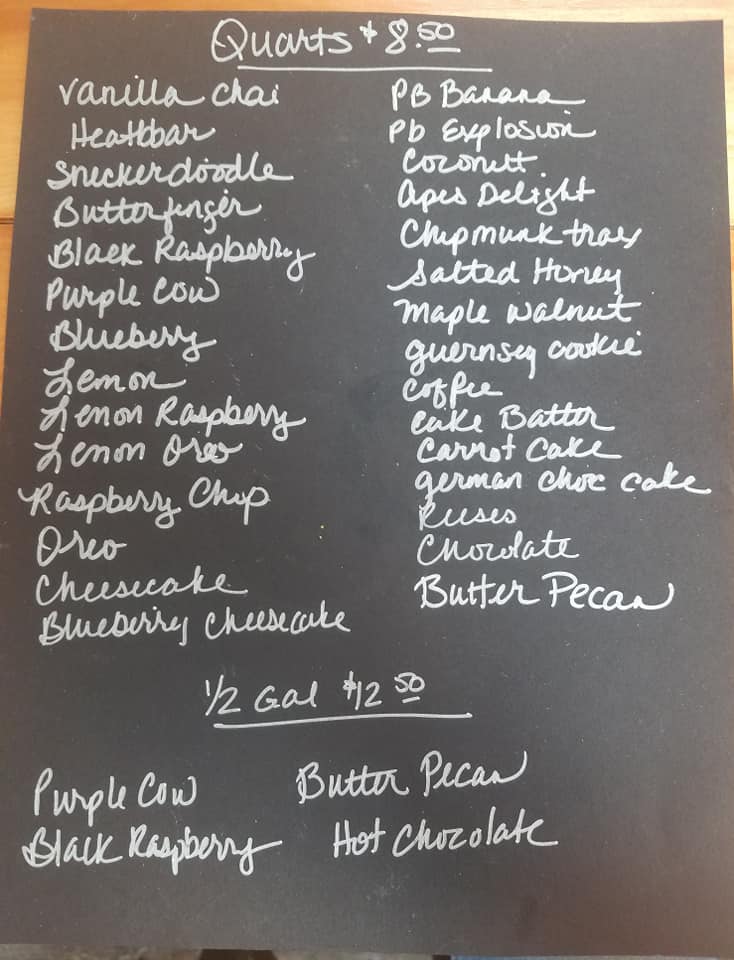 Quarts $8.50
Vanilla Chai
Heathbar
Snickerdoodle
Butterfinger
Black Raspberry
Purple Cow
Blueberry
Lemon
Lemon Raspberry
Lemon Oreo
Raspberry Chip
Oreo
Cheesecake
Blueberry Cheesecake
PB Banana
Pb Explosion
Coconutt
Apes Delight
Chipmunk trax
Salted Honey
Maple Walnut
Guernsey cookie
Coffee
Cake Batter
Carrot Cake
German choc cake
Reeses
Chocolate
Butter Pecan
1/2 Gal $12 50
Purple Cow
Black Raspberry
Butter Pecan
Hot Chocolate